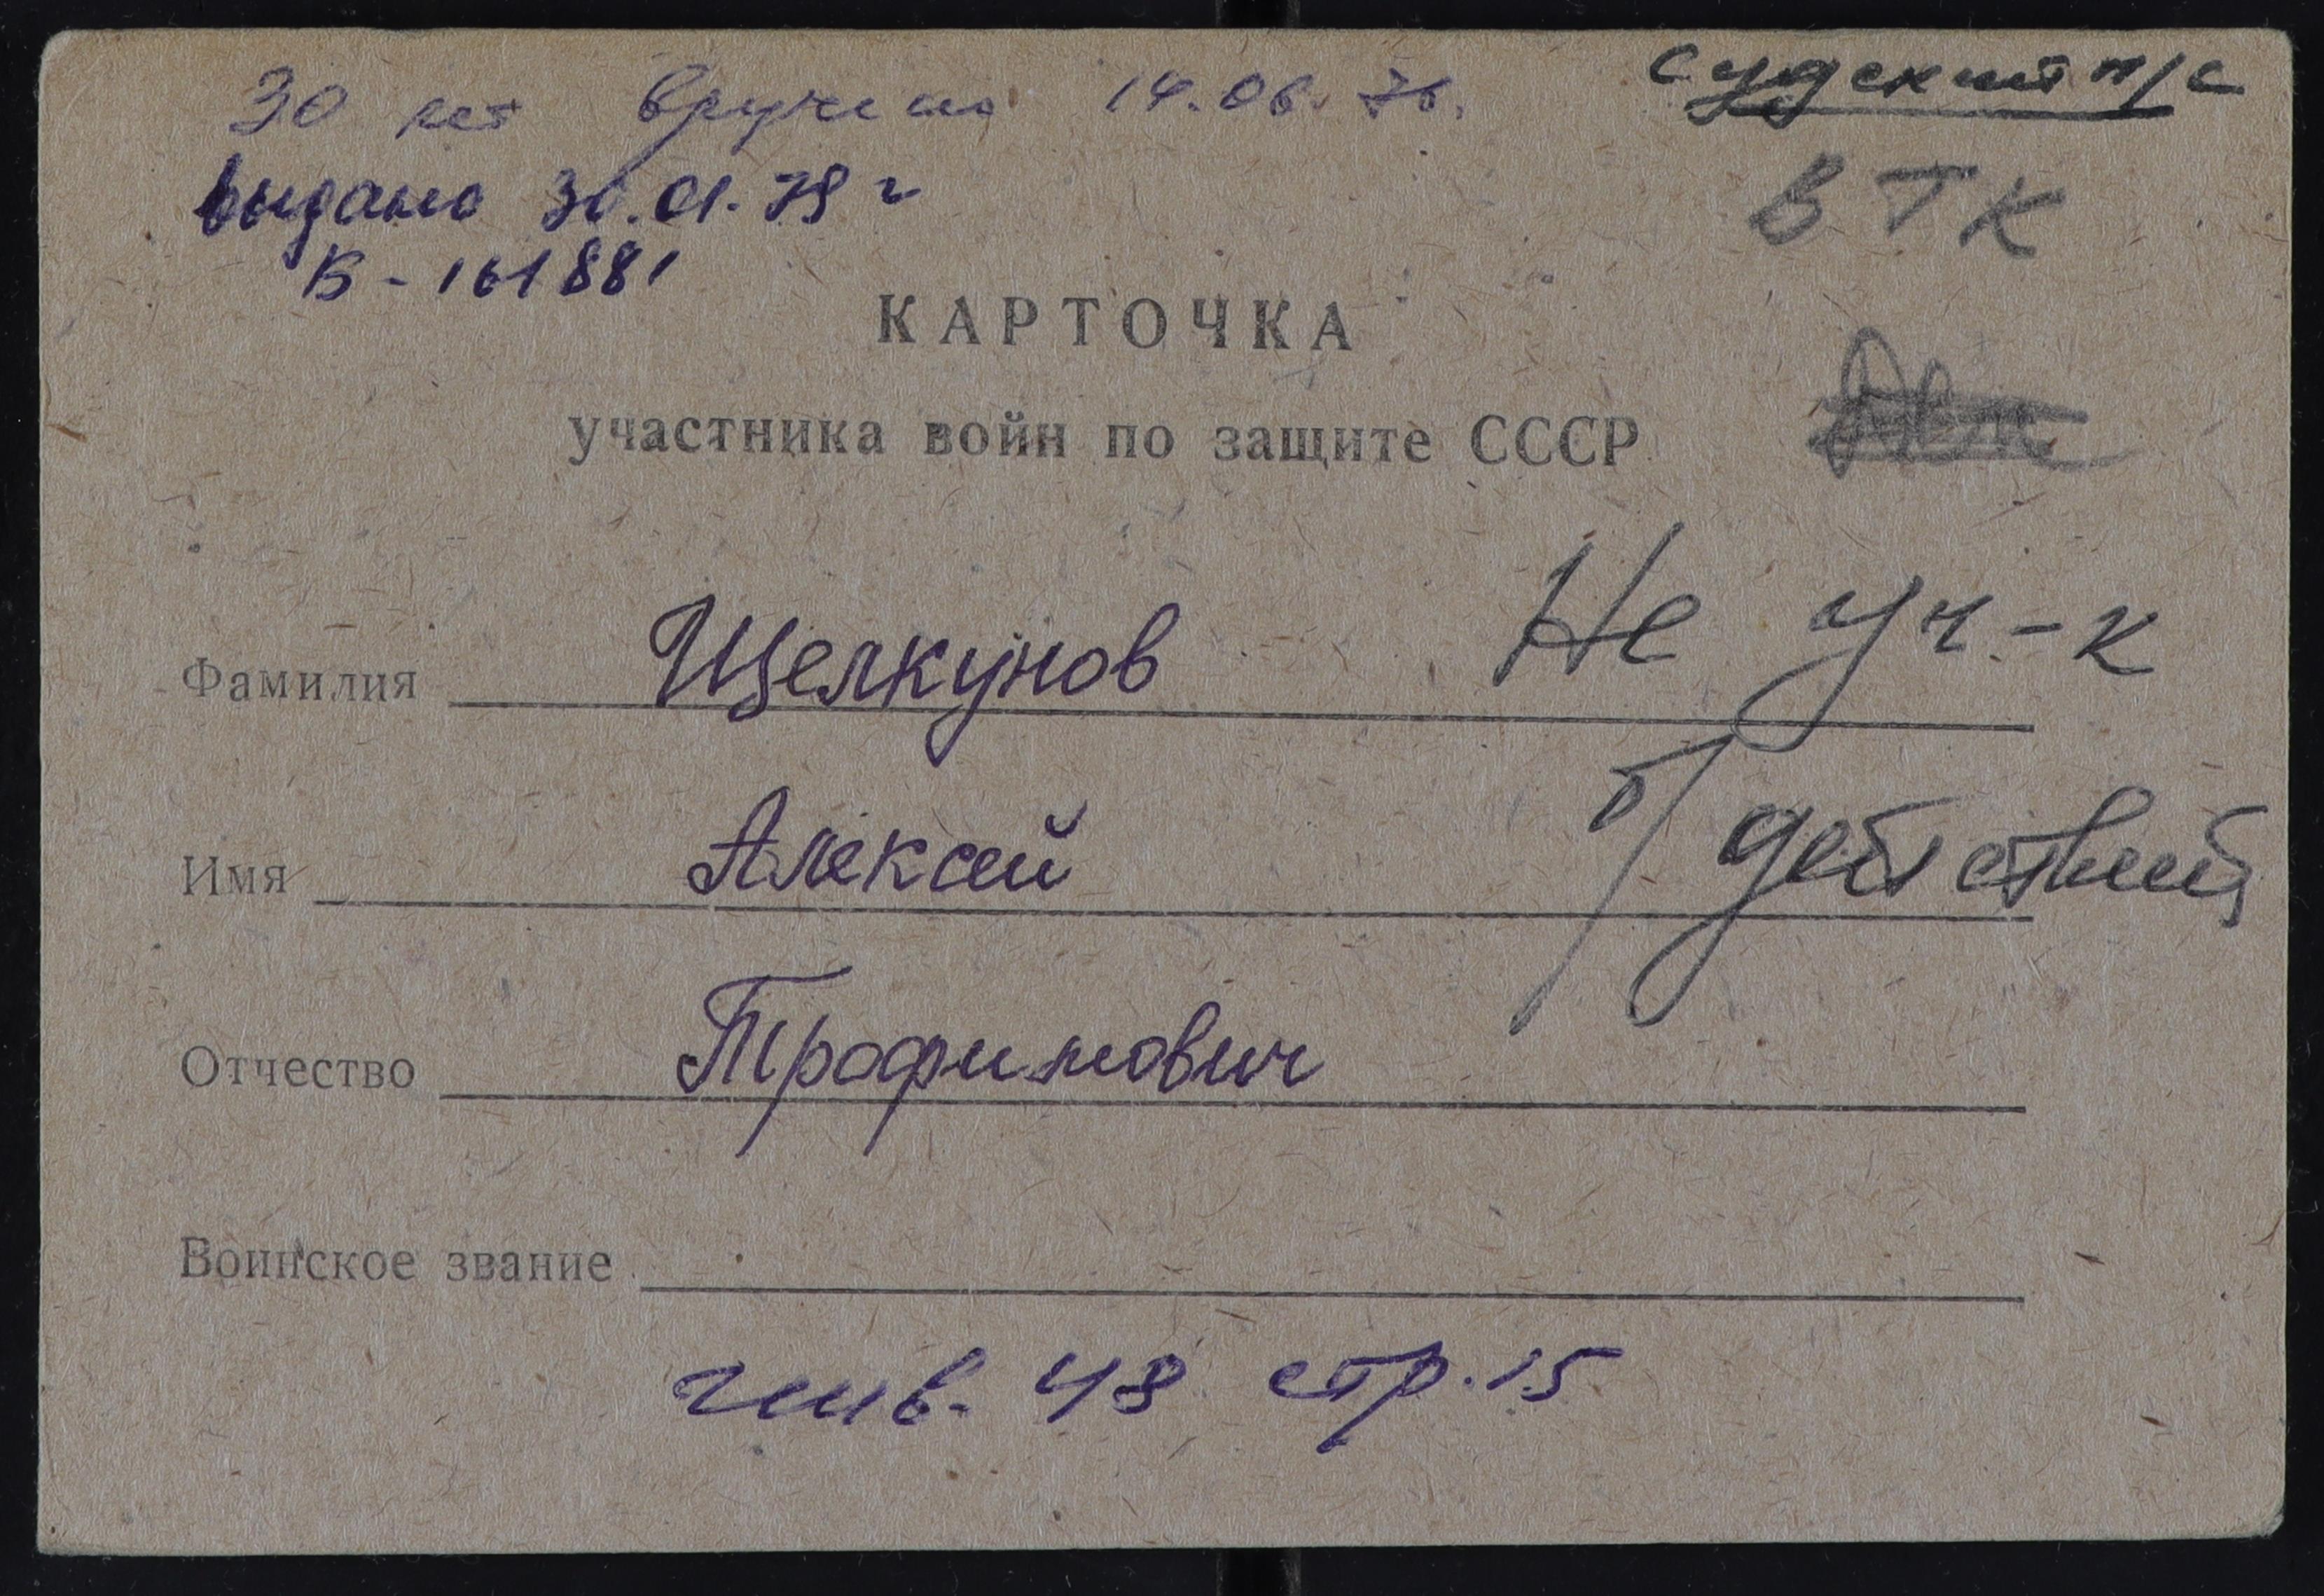 30 лет вручено 14.06.76.
Судский п/с
выдано 30.01.79 г
В-161881
ВТК
КАРТОЧКА
участника войн по защите СССР
Фамилия Щелкунов
Не уч-к
Имя Алексей
б/действий
Отчество Трофимович
Воинское звание
инв. 48 стр. 15